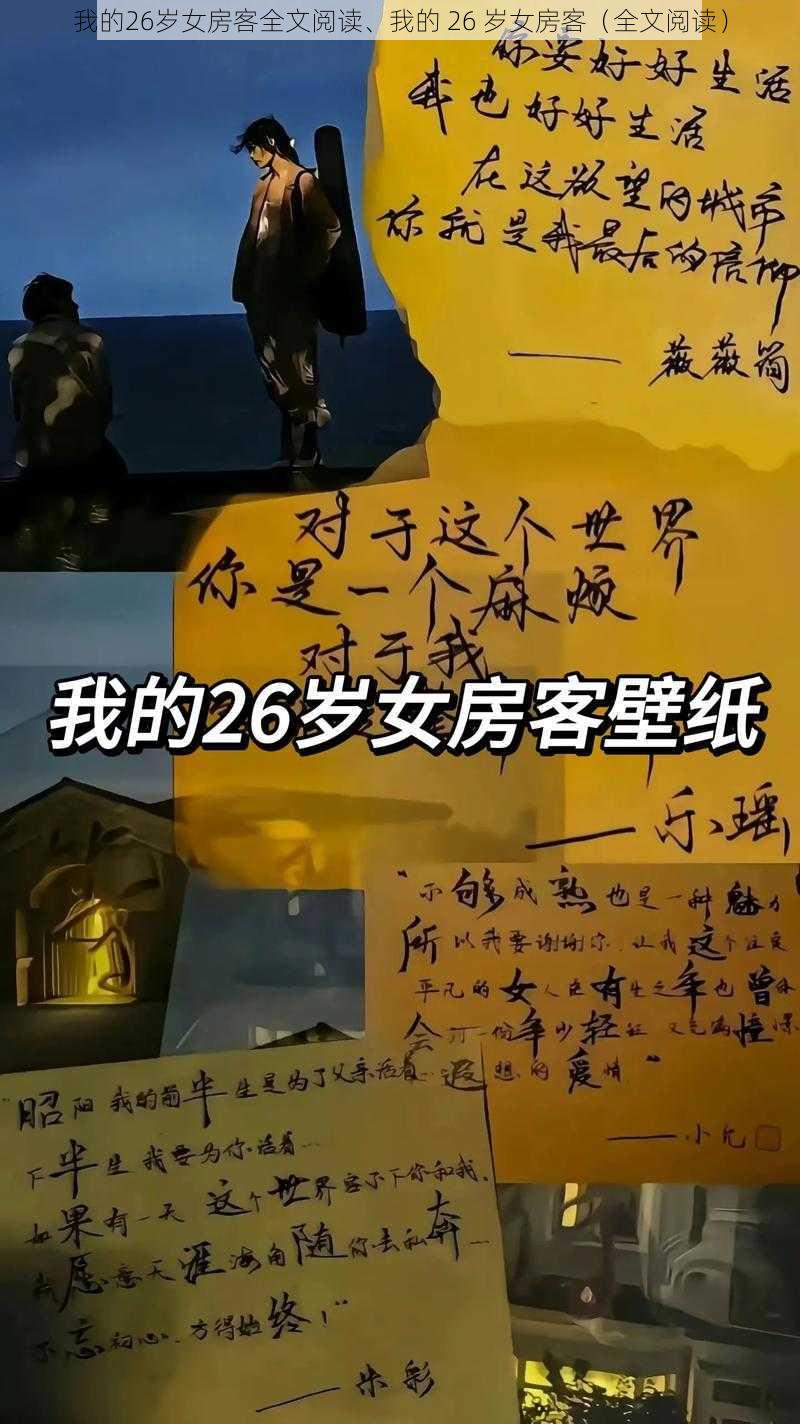 我的26岁女房客全文阅读、我的 26 岁女房客（全文阅读）
你要好好生活
我也好好生活
在这欲望的城市
你就是我最后的信仰
—— 薇薇简
对于这个世界
你是一个麻烦
对于我
我的26岁女房客壁纸
——乐瑶
“不够成熟也是一种魅力
所以我要谢谢你 让我这个注定
平凡的女人在有生之年也曾体
会了一份年少轻狂 又充满憧憬
遐想的爱情”
——小允
“昭阳 我的前半生是为了父亲活着…
下半生 我要为你活着…
如果有一天 这个世界容不下你和我.
我愿意天涯海角随你去私奔…
不忘初心.方得始终！”
——米彩